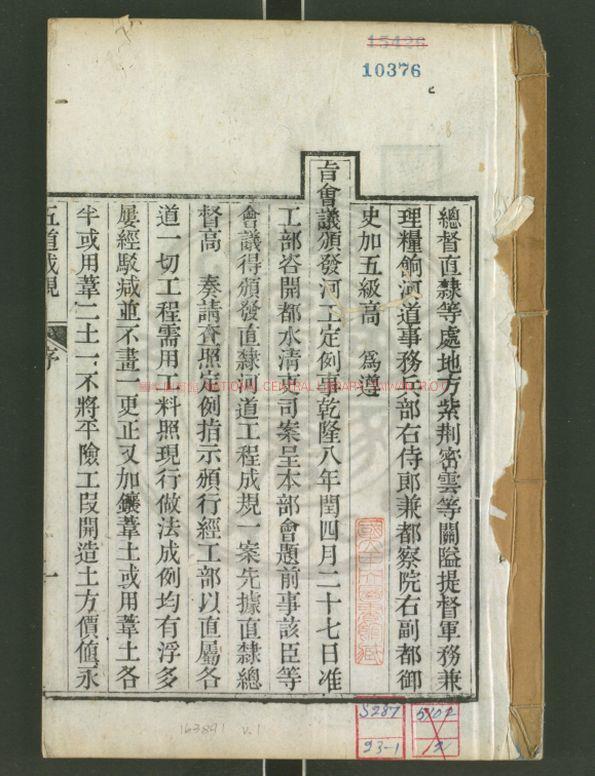 15426
10376
總督直隸等處地方紫荆密雲等關隘提督軍務兼
理糧餉河道事務兵部右侍郎兼都察院右副都御
史加五級高　為遵
旨會議頒發河工定例事乾隆八年閏四月二十七日准
工部咨開都水清吏司案呈本部會題前事該臣等
會議得頒發直隸河道工程成規一案先據直隸總
督高　奏請查照定例指示頒行經工部以直屬各
道一切工程需用工料照現行做法成例均有浮多
屢經駁減並不畫一更正又加鑲葦土或用葦土各
半或用葦二土一不將平險工段開造土方價值永
五道成規　序　一
國家圖書館 NATIONAL CENTRAL LIBRARY, TAIWAN, R.O.C
國立中央圖書館藏
5287
23-1
5102
12
163891 v.1